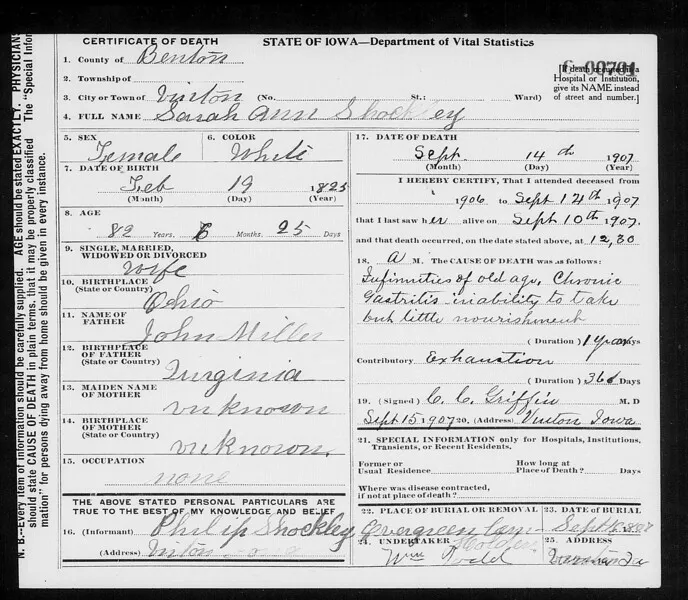 CERTIFICATE OF DEATH
STATE OF IOWA—Department of Vital Statistics
1. County of Benton
2. Township of
3. City or Town of Vinton (No. St.; Ward)
[If death occurred in a Hospital or Institution, give its NAME instead of street and number.]
00701
4. FULL NAME Sarah Ann Shockley
5. SEX
Female
6. COLOR
White
7. DATE OF BIRTH
Feb 19 1825
(Month) (Day) (Year)
8. AGE
82 Years 6 Months 25 Days
9. SINGLE, MARRIED, WIDOWED OR DIVORCED
Wife
10. BIRTHPLACE
(State or Country)
Ohio
11. NAME OF FATHER
John Miller
12. BIRTHPLACE OF FATHER
(State or Country)
Virginia
13. MAIDEN NAME OF MOTHER
unknown
14. BIRTHPLACE OF MOTHER
(State or Country)
unknown.
15. OCCUPATION
none
THE ABOVE STATED PERSONAL PARTICULARS ARE
TRUE TO THE BEST OF MY KNOWLEDGE AND BELIEF
16. (Informant) Philip Shockley
(Address) Vinton Iowa
17. DATE OF DEATH
Sept. 14th 1907
(Month) (Day) (Year)
I HEREBY CERTIFY, That I attended deceased from
1906 to Sept 14th 1907
that I last saw her alive on Sept 10th 1907.
and that death occurred, on the date stated above, at 12,30
18. A M. The CAUSE OF DEATH was as follows:
Infirmities of old age, Chronic
Gastritis inability to take
but little nourishment
(Duration) 1 year Days
Contributory Exhaustion
(Duration) 366 Days
19. (Signed) C. C. Griffin M. D
Sept 15 1907 20. (Address) Vinton Iowa
21. SPECIAL INFORMATION only for Hospitals, Institutions, Transients, or Recent Residents.
Former or Usual Residence
How long at Place of Death? Days
Where was disease contracted, if not at place of death?
22. PLACE OF BURIAL OR REMOVAL
Evergreen Cem
23. DATE OF BURIAL
Sept 16 1907
24. UNDERTAKER
Wm
25. ADDRESS
N. B.—Every item of information should be carefully supplied. AGE should be stated EXACTLY. PHYSICIANS
should state CAUSE OF DEATH in plain terms, that it may be properly classified The "Special Infor-
mation" for persons dying away from home should be given in every instance.